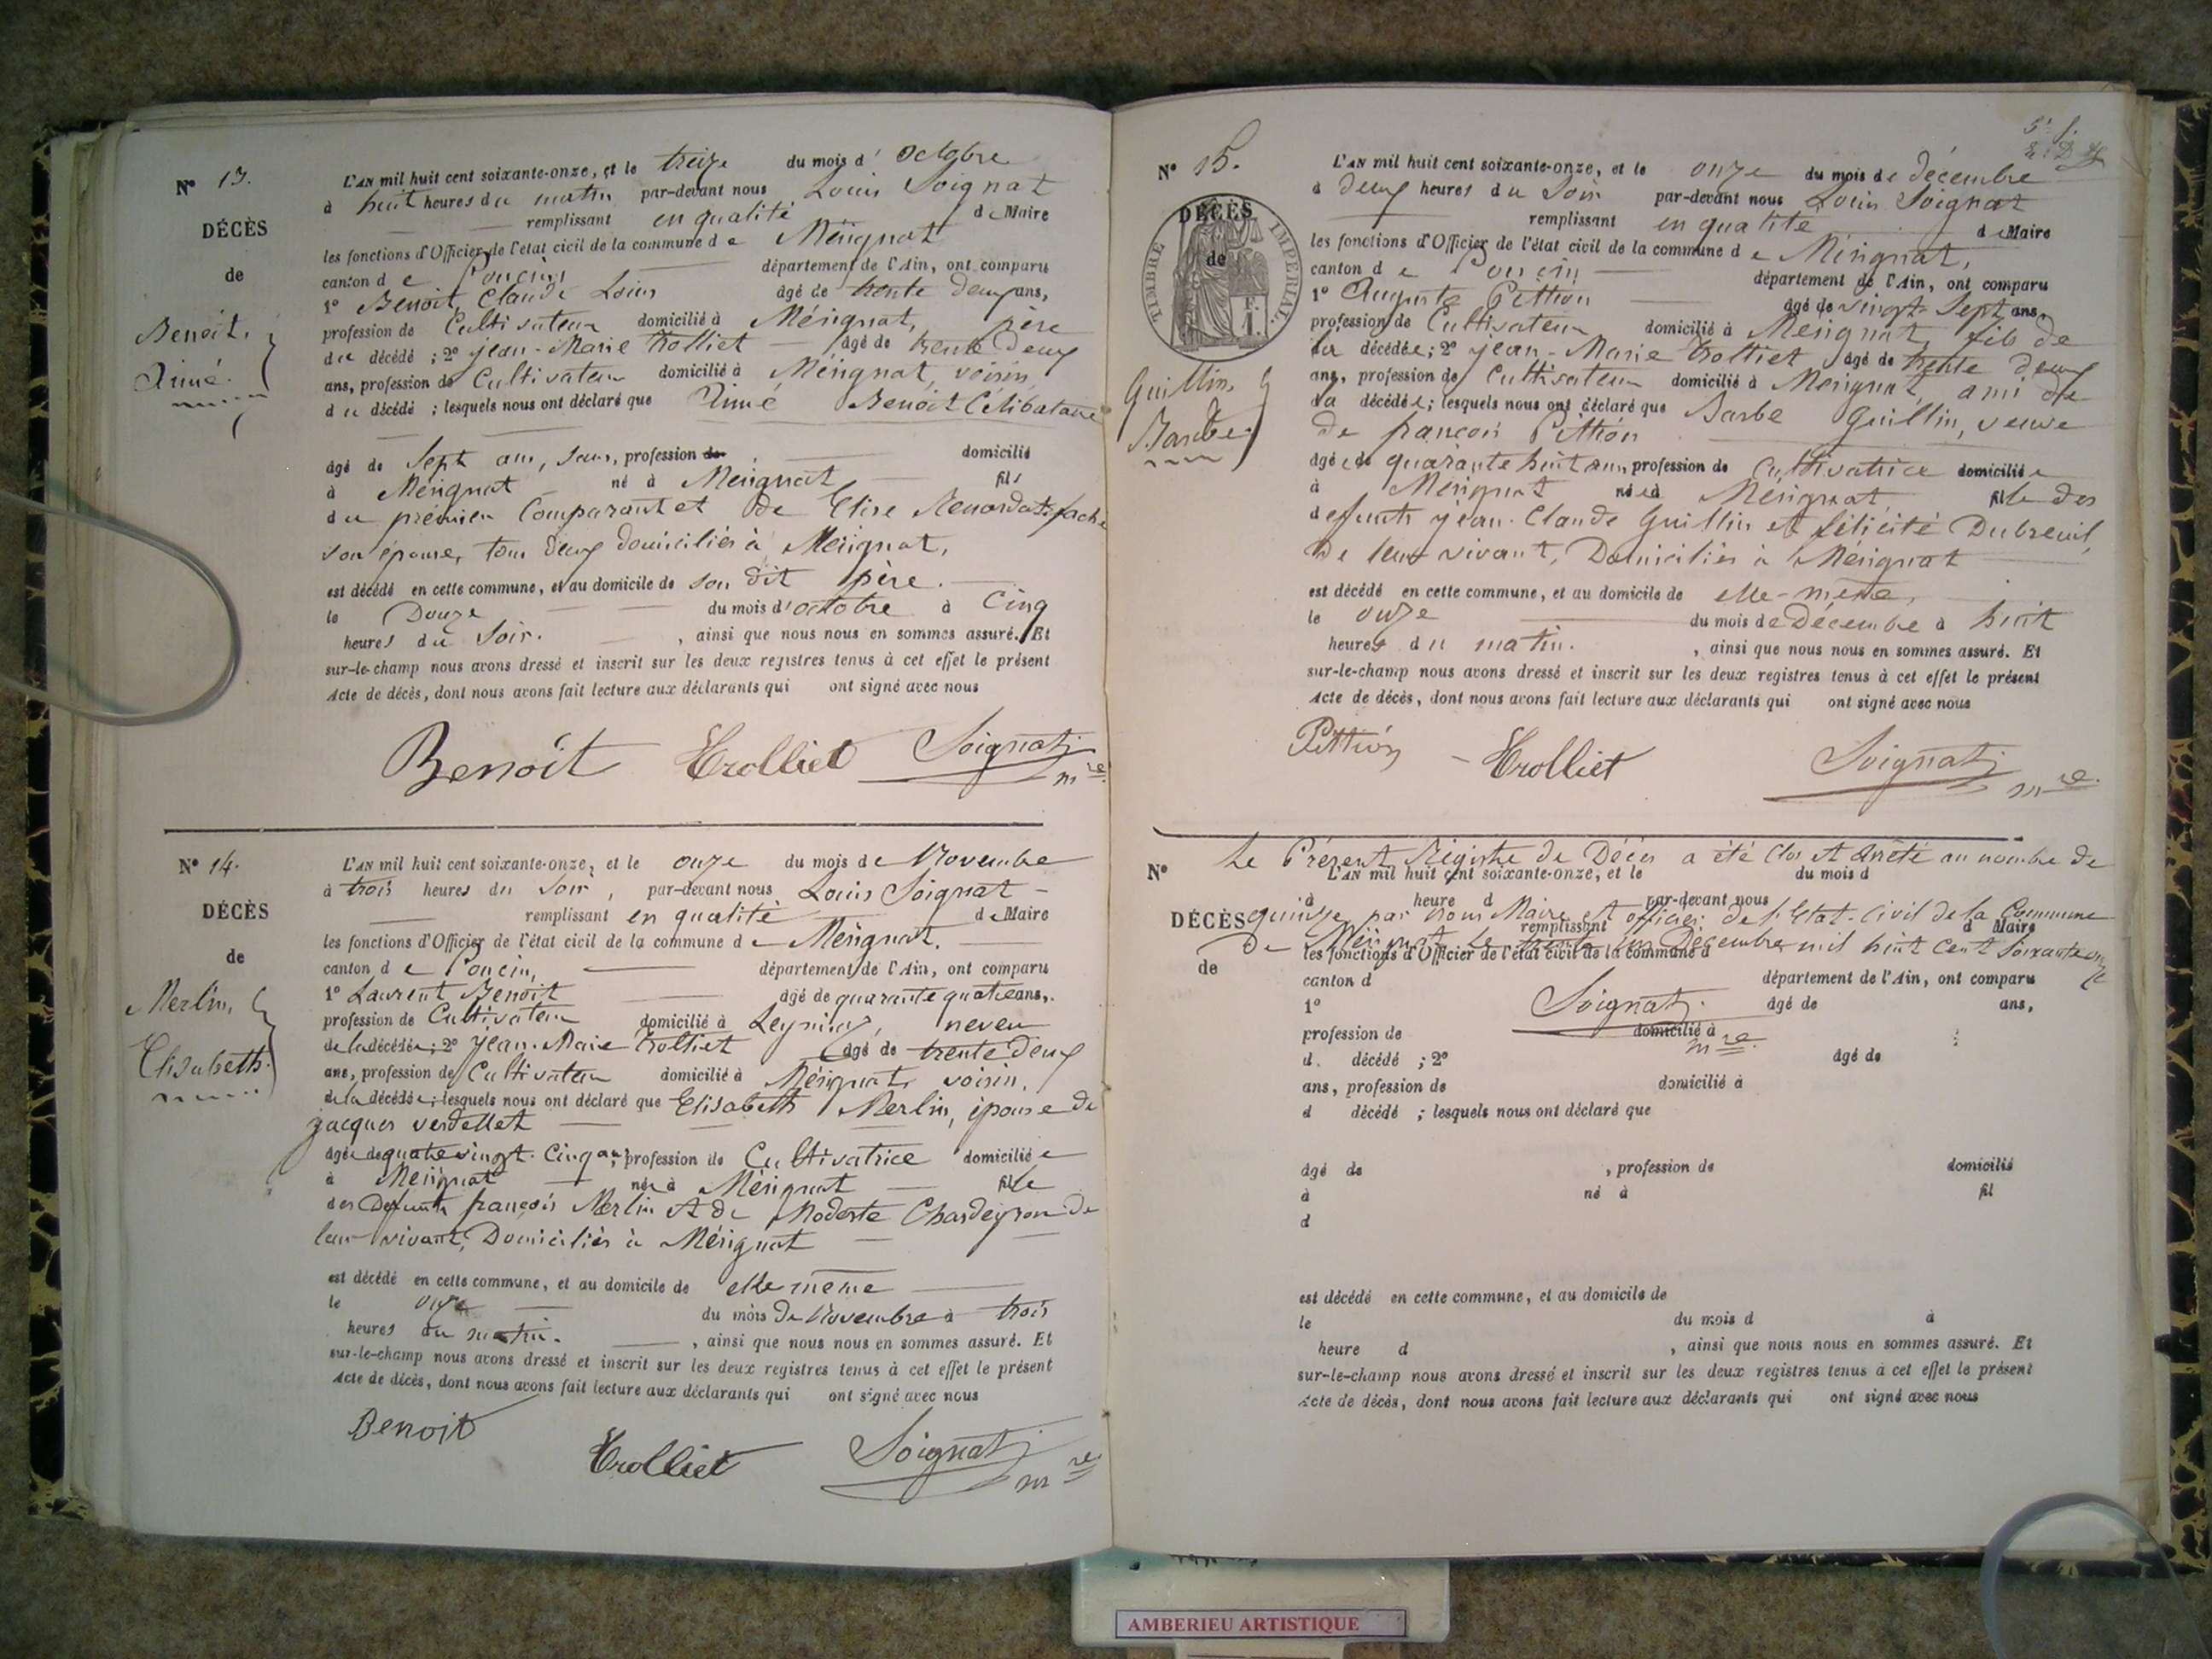 N° 13.
DÉCÈS
de
Benoit,
Aimé.
L'AN mil huit cent soixante-onze, et le treize du mois d'octobre
à huit heures du matin par-devant nous Louis Soignat
remplissant en qualité de Maire
les fonctions d'Officier de l'état civil de la commune de Mérignat
canton de Poncin département de l'Ain, ont comparu
1° Benoit, Claude Louis âgé de trente deux ans,
profession de Cultivateur domicilié à Mérignat, père
du décédé ; 2° jean-Marie trolliet âgé de trente deux
ans, profession de Cultivateur domicilié à Mérignat, voisin
du décédé ; lesquels nous ont déclaré que Aimé Benoit Célibataire
âgé de Sept ans, sans, profession de domicilié
à Mérignat né à Mérignat fils
du premier Comparant et de Elise
son épouse, tous deux domiciliés à Mérignat,
est décédé en cette commune, et au domicile de son dit père.
le Douze du mois d'octobre à Cinq
heures du Soir. , ainsi que nous nous en sommes assuré. Et
sur-le-champ nous avons dressé et inscrit sur les deux registres tenus à cet effet le présent
Acte de décès, dont nous avons fait lecture aux déclarants qui ont signé avec nous
Benoit Trolliet Soignat
mre
N° 14.
DÉCÈS
de
Merlin,
Elisabeth.
L'AN mil huit cent soixante-onze, et le onze du mois de Novembre
à trois heures du Soir, par-devant nous Louis Soignat
remplissant en qualité de Maire
les fonctions d'Officier de l'état civil de la commune de Mérignat.
canton de Poncin, département de l'Ain, ont comparu
1° Laurent Benoit âgé de quarante quatre ans,
profession de Cultivateur domicilié à Leymiat, neveu
de la décédée; 2° jean-Marie trolliet âgé de trente deux
ans, profession de Cultivateur domicilié à Mérignat, voisin,
de la décédée; lesquels nous ont déclaré que Elisabeth Merlin, épouse de
jacques verdellet
âgée de quatre vingt-Cinq ans, profession de Cultivatrice domiciliée
à Mérignat née à Mérignat fille
des Defunts françois Merlin et de Modeste Chardeyron de
leur vivant, Domiciliés à Mérignat
est décédé en cette commune, et au domicile de elle même
le onze du mois de Novembre à trois
heures du matin. , ainsi que nous nous en sommes assuré. Et
sur-le-champ nous avons dressé et inscrit sur les deux registres tenus à cet effet le présent
Acte de décès, dont nous avons fait lecture aux déclarants qui ont signé avec nous
Benoit
Trolliet Soignat
mre
N° 15.
DÉCÈS
de
TIMBRE IMPÉRIAL
Guillin,
Barbe
L'AN mil huit cent soixante-onze, et le onze du mois de décembre
à deux heures du Soir par-devant nous Louis Soignat
remplissant en qualité de Maire
les fonctions d'Officier de l'état civil de la commune de Mérignat,
canton de Poncin département de l'Ain, ont comparu
1° Auguste Pittion âgé de vingt-Sept ans,
profession de Cultivateur domicilié à Mérignat, fils de
la décédée; 2° jean-Marie trolliet âgé de trente deux
ans, profession de Cultivateur domicilié à Mérignat, ami de
la décédée; lesquels nous ont déclaré que Barbe Guillin, veuve
de françois Pittion
âgée de quarante huit ans, profession de Cultivatrice domiciliée
à Mérignat née à Mérignat, fille des
deffunts jean-Claude Guillin et félicité Dubreuil,
De leur vivant, Domiciliés à Mérignat
est décédé en cette commune, et au domicile de elle-même,
le onze du mois de Décembre à huit
heures du matin. , ainsi que nous nous en sommes assuré. Et
sur-le-champ nous avons dressé et inscrit sur les deux registres tenus à cet effet le présent
Acte de décès, dont nous avons fait lecture aux déclarants qui ont signé avec nous
Pittion Trolliet Soignat
mre
Le Présent Régistre de Décès a été Clos et Arrêté au nombre de
N° L'AN mil huit cent soixante-onze, et le du mois d
à heure d par-devant nous
DÉCÈS quinze par nous Maire et officier de l'Etat-Civil de la Commune
remplissant d Maire
de Mérignat le trente un Décembre mil huit Cent Soixante onze
les fonctions d'Officier de l'état civil de la commune d
de
canton d département de l'Ain, ont comparu
Soignat
1° âgé de ans,
profession de domicilié à
mre
d décédé ; 2° âgé de
ans, profession de domicilié à
d décédé ; lesquels nous ont déclaré que
âgé de , profession de domicilié
à né à fil
d
est décédé en cette commune, et au domicile de
le du mois d à
heure d , ainsi que nous nous en sommes assuré. Et
sur-le-champ nous avons dressé et inscrit sur les deux registres tenus à cet effet le présent
Acte de décès, dont nous avons fait lecture aux déclarants qui ont signé avec nous
AMBERIEU ARTISTIQUE